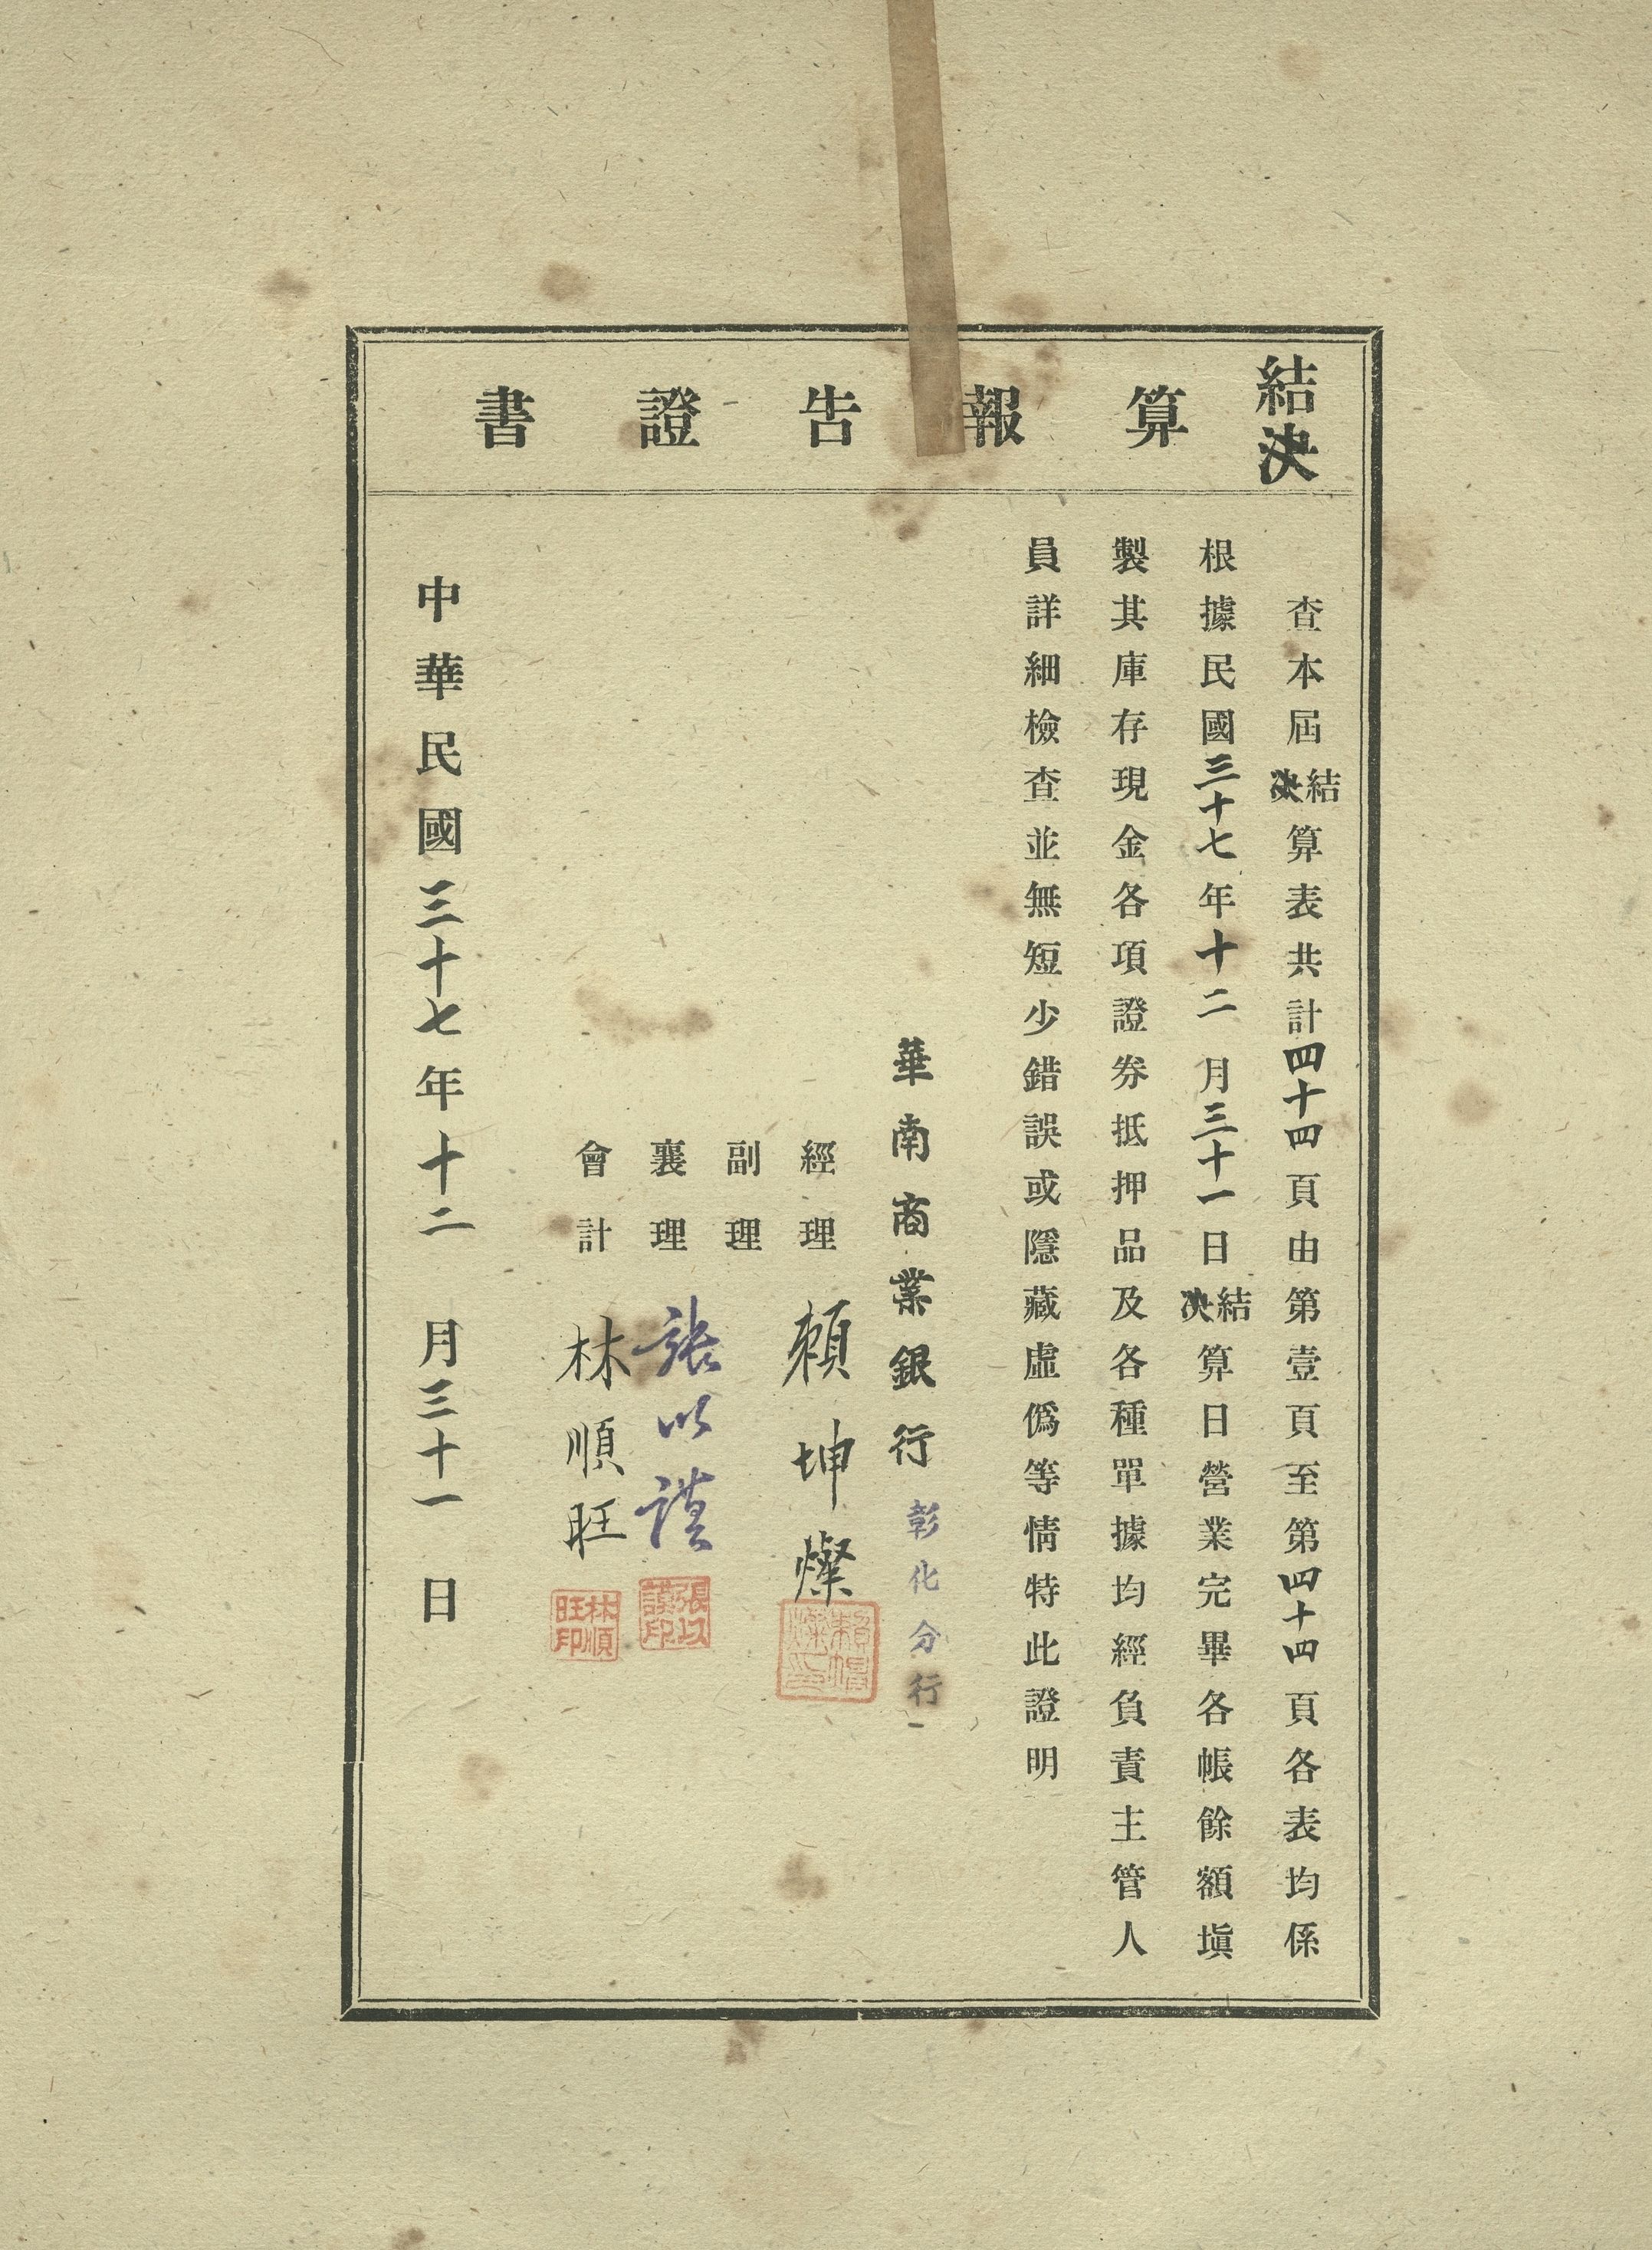 結決算報告證書
查本屆結決算表共計四十四頁由第壹頁至第四十四頁各表均係
根據民國三十七年十二月三十一日結決算日營業完畢各帳餘額塡
製其庫存現金各項證券抵押品及各種單據均經負責主管人
員詳細檢查並無短少錯誤或隱藏虛僞等情特此證明
華南商業銀行彰化分行
經理 賴坤燦
副理
襄理 張以謨
會計 林順旺
張以謨印
林順旺印
中華民國三十七年十二月三十一日